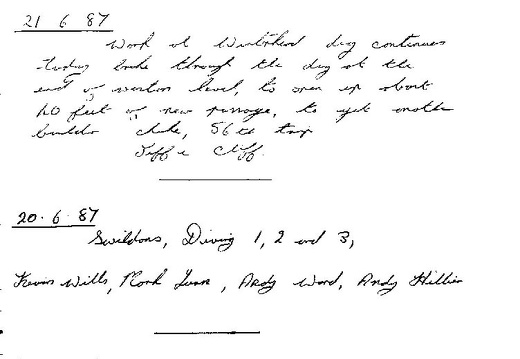 21 6 87
Work at dig continues
today broke through the dig at the
end of western level, to open up about
20 feet of new passage, to yet another
boulder choke, 56th trip
Jeff & Cliff.
20.6.87
Swildons, Diving 1, 2 and 3,
Kevin Wills, Mark, Andy Ward, Andy Hillier